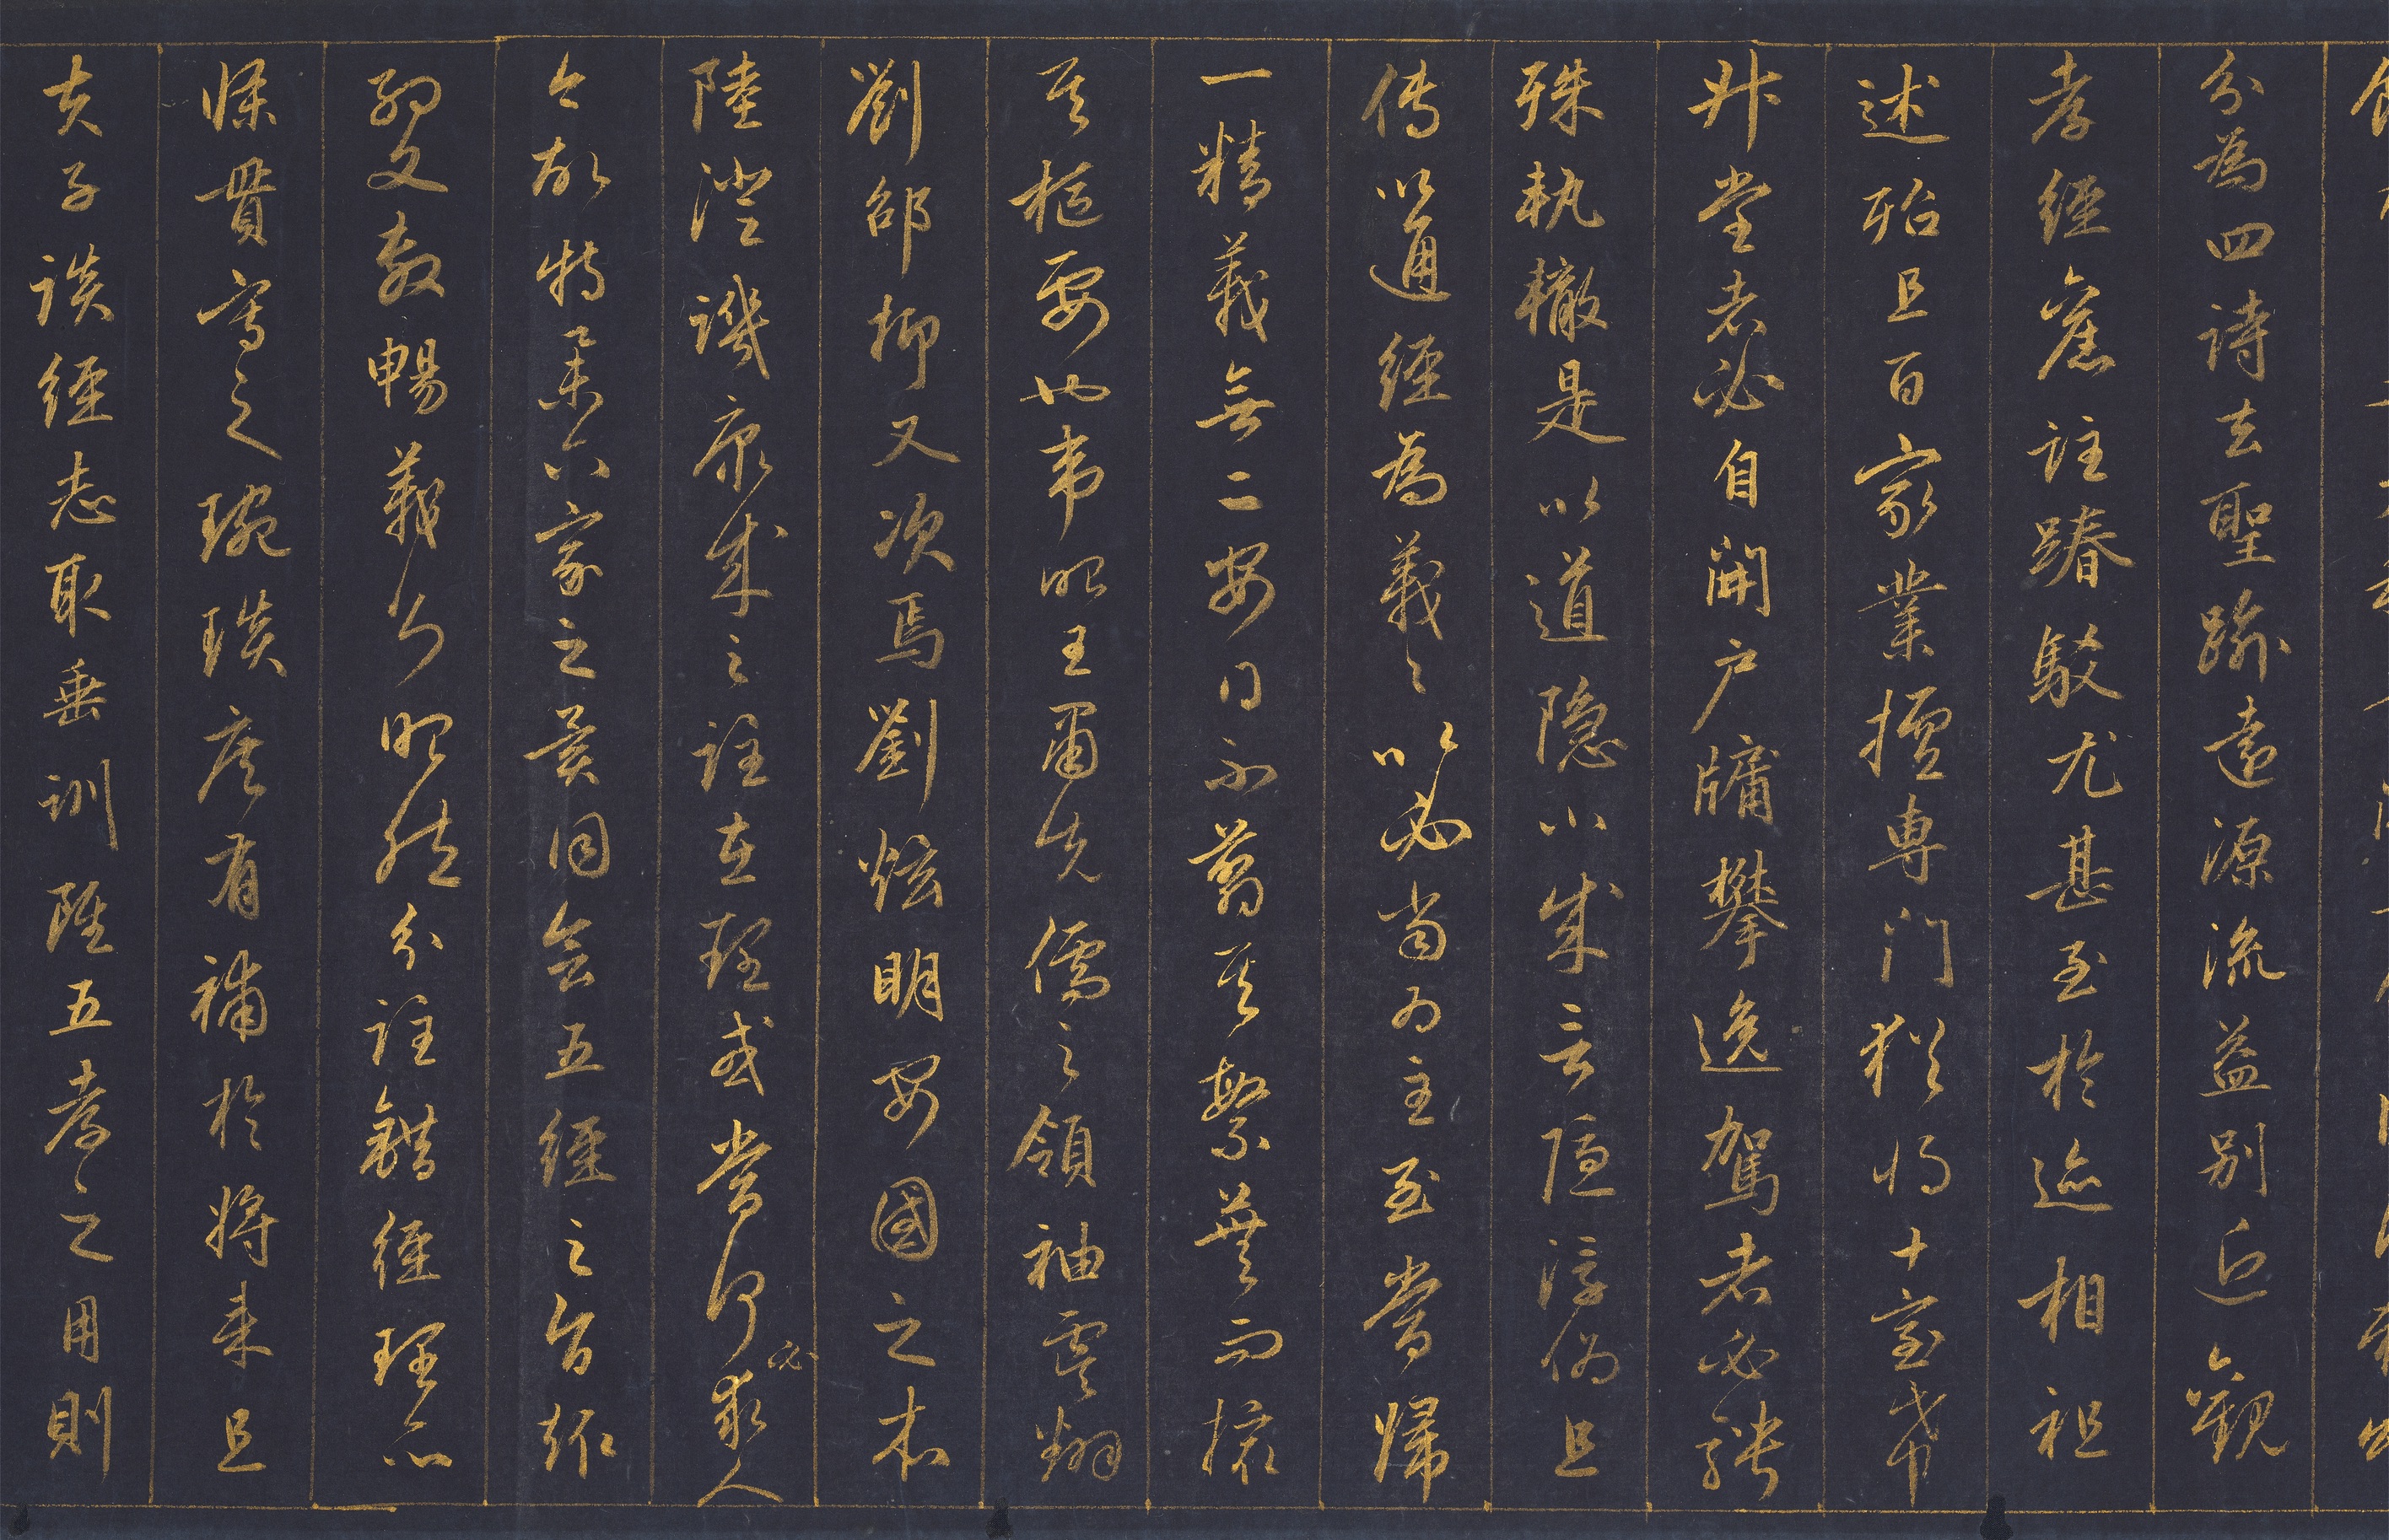 分為四詩去聖踰遠源流益別近觀
孝經舊註踳駁尤甚至於迹相祖
述殆且百家業擅專門猶將十室希
升堂者必自開戶牖攀逸駕者必騁
殊軌轍是以道隱小成言隱浮偽且
傳以通經為義々以必當為主至當歸
一精義無二安得不翦其繁蕪而撮
其樞要也韋昭王肅先儒之領袖虞翻
劉邵抑又次焉劉炫明安國之本
陸澄譏康成之註在理或當何必求人
今故特舉六家之異同會五經之旨趣
約文敷暢義則昭然分註錯經理亦
條貫寫之琬琰庶有補於將來且
夫子談經志取垂訓雖五孝之用則